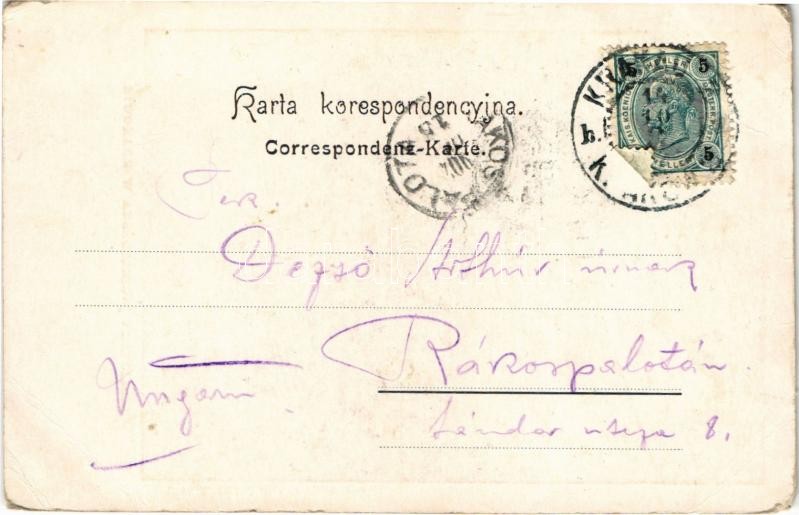 Karta korespondencyjna.
Correspondenz-Karte.
5 5
5
Tek.
Dezső Arthúr úrnak
Rákospalotán
Ungarn
Sándor utcza 8.